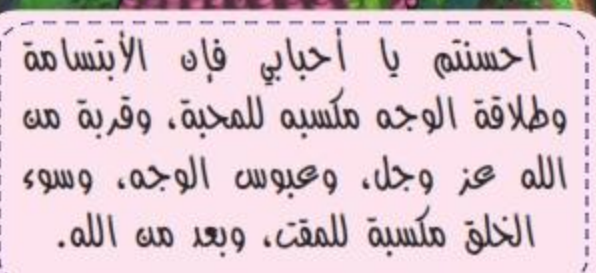 أحسنتم يا أحبابي فإن الأبتسامة
وطلاقة الوجه مكسبه للمحبة، وقربة من
الله عز وجل، وعبوس الوجه، وسوء
الخلق مكسبة للمقت، وبعد من الله.